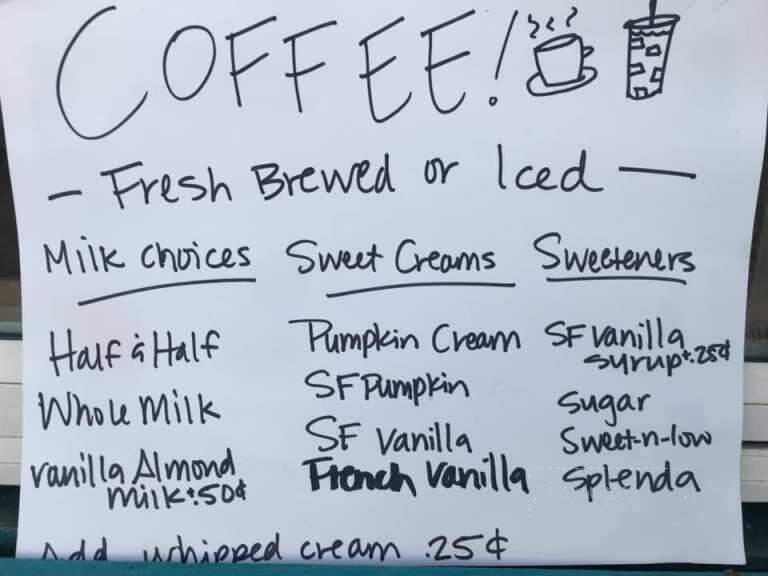 COFFEE!
- Fresh Brewed or Iced -
Milk Choices
Half & Half
Whole Milk
Vanilla Almond
Milk +.50¢
Sweet Creams
Pumpkin Cream
SF Pumpkin
SF Vanilla
French Vanilla
Sweeteners
SF Vanilla
Syrup +.25¢
Sugar
Sweet-n-low
Splenda
Add whipped cream .25¢